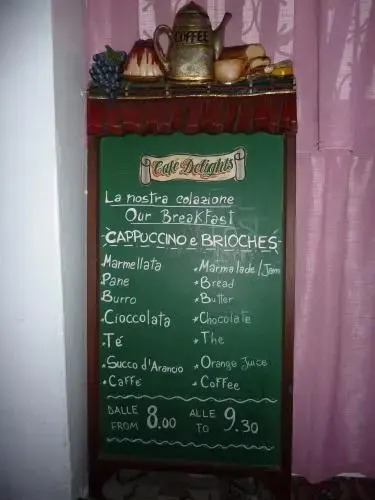 COFFEE
Cafe Delights
La nostra colazione
Our Breakfast
CAPPUCCINO e BRIOCHES
Marmellata * Marmalade/Jam
Pane * Bread
Burro * Butter
Cioccolata * Chocolate
Té * The
Succo d'Arancio * Orange Juice
Caffé * Coffee
DALLE 8.00 ALLE 9.30
FROM TO